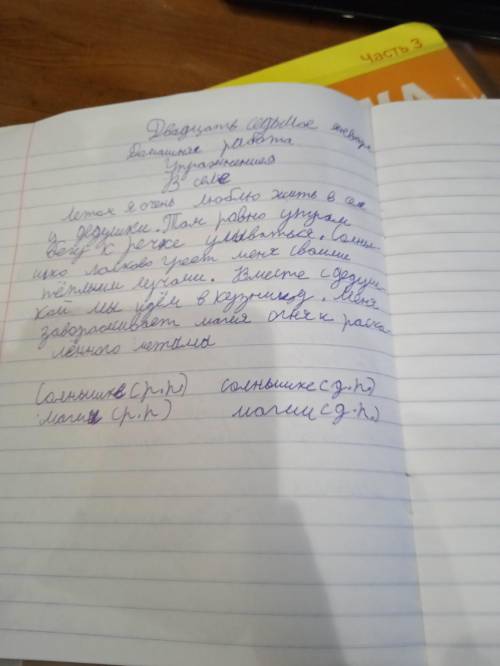 Часть 3
Двадцать седьмое января
Домашняя работа
Упражнения
В селе
Летом я очень люблю жить в се
у дедушки. Там равно утром
бегу к речке умываться. Солны
шко ласково греет меня своими
тёплыми лучами. Вместе с дедуш
кой мы идём в кузницу. Меня
завораживает магия огня и раска
лённого метала
Солнышке (р.п) солнышке (д.п.)
магии (р.п) магии (д.п.)